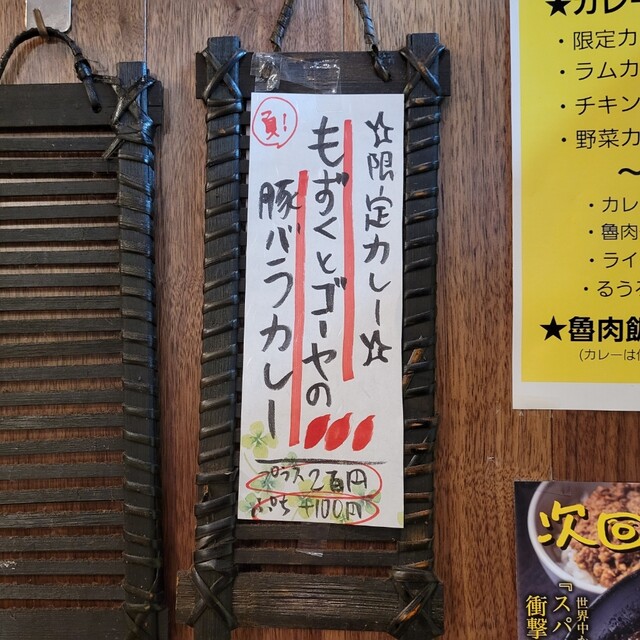 ☆限定カレー☆
もずくとゴーヤの
豚バラカレー
プラス2百円
+100円
★カレー
・限定カ
・ラムカ
・チキン
・野菜カ
〜
・カレ
・魯肉
・ライ
・るうる
★魯肉飯
(カレーは
次回
世界中
『スパ
衝撃